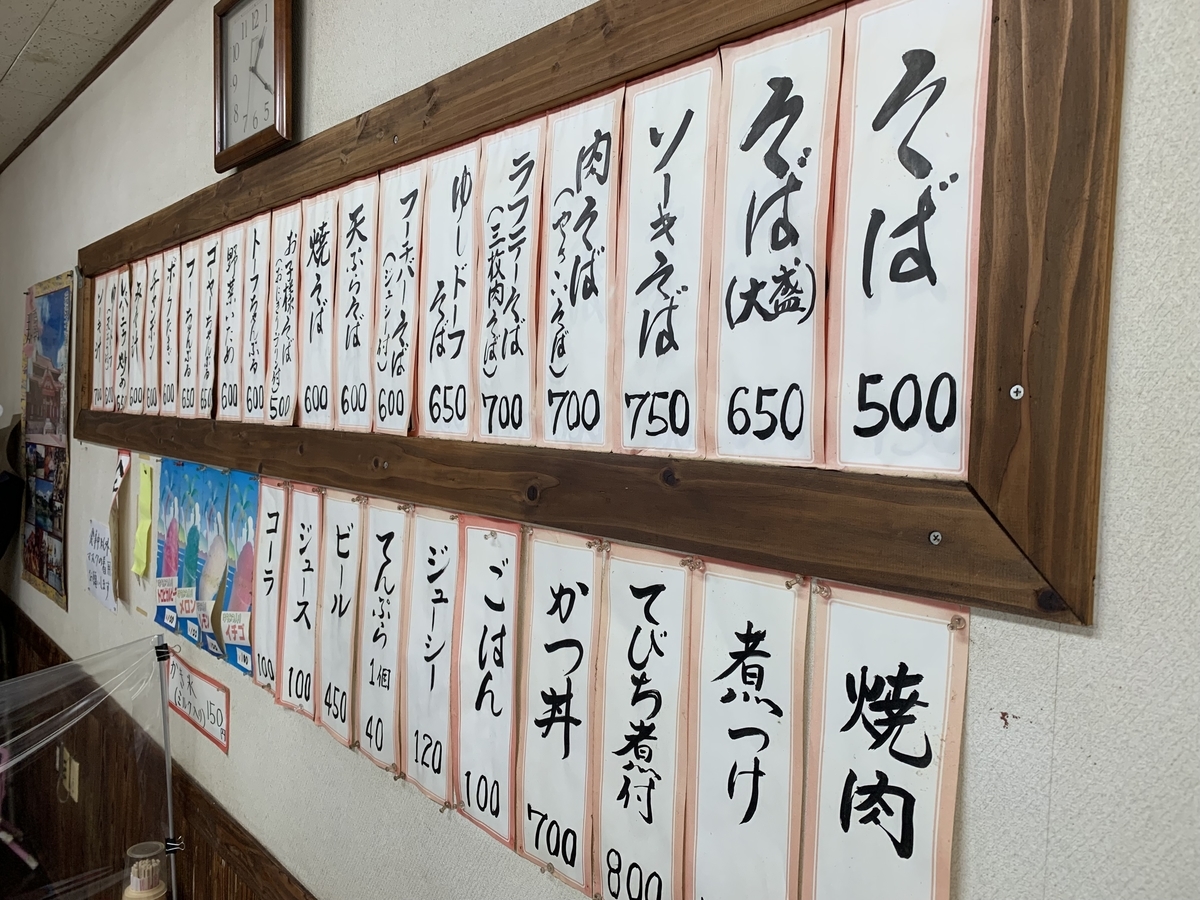 そば
500
そば
(大盛)
650
ソーキそば
750
肉そば
(やさいそば)
700
ラフテーそば
(三枚肉そば)
700
ゆしドーフ
そば
650
フーチバーそば
(ジューシー付)
600
天ぷらそば
600
焼そば
600
お子様そば
500
トーフちゃんぷる
600
野菜いため
600
ゴーヤーちゃんぷる
650
フーちゃんぷる
650
焼肉
煮つけ
てびち煮付
800
かつ丼
700
ごはん
100
ジューシー
120
てんぷら1個
40
ビール
450
ジュース
100
コーラ
100
イチゴ
メロン
かき氷
(ミルク入り)
150
円
12
1
5
6
7
8
9
10
11